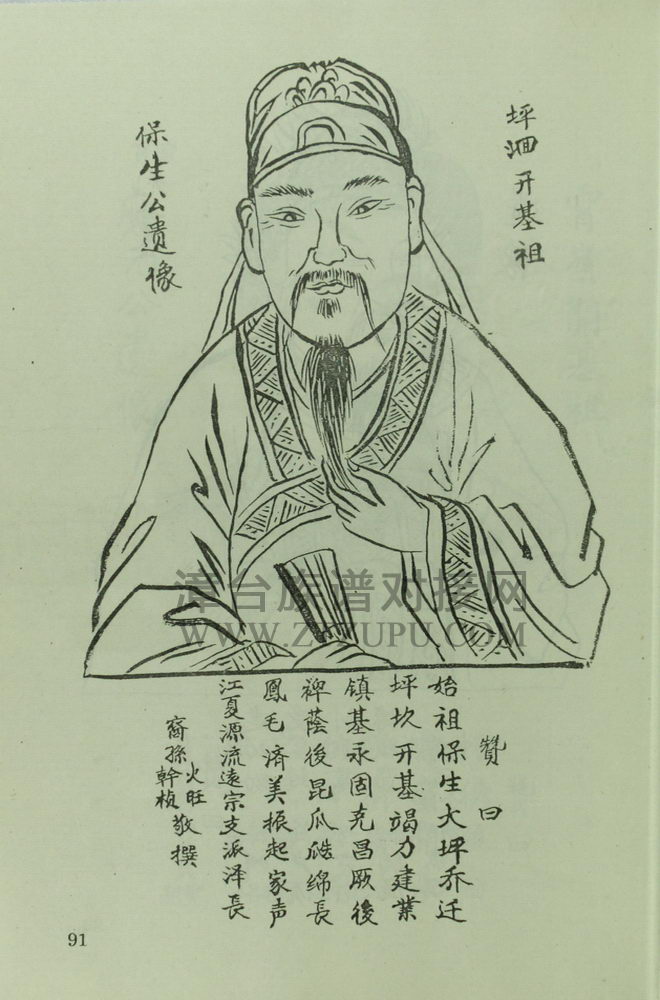 坪洄开基祖
保生公遺像
漳台族谱对接网
WWW.ZTZUPU.COM
贊曰
始祖保生大坪乔迁
坪坎开基竭力建業
镇基永固克昌厥後
裨蔭後昆瓜瓞绵長
鳳毛济美振起家声
江夏源流遠宗支派泽長
裔孫火旺
幹楨敬撰
91